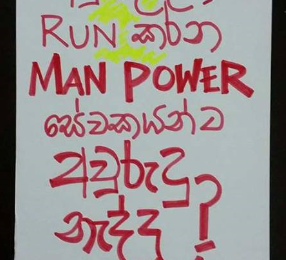 RUN කරන
MAN POWER
සේවකයන්ට
අවුරුදු
නැද්ද?